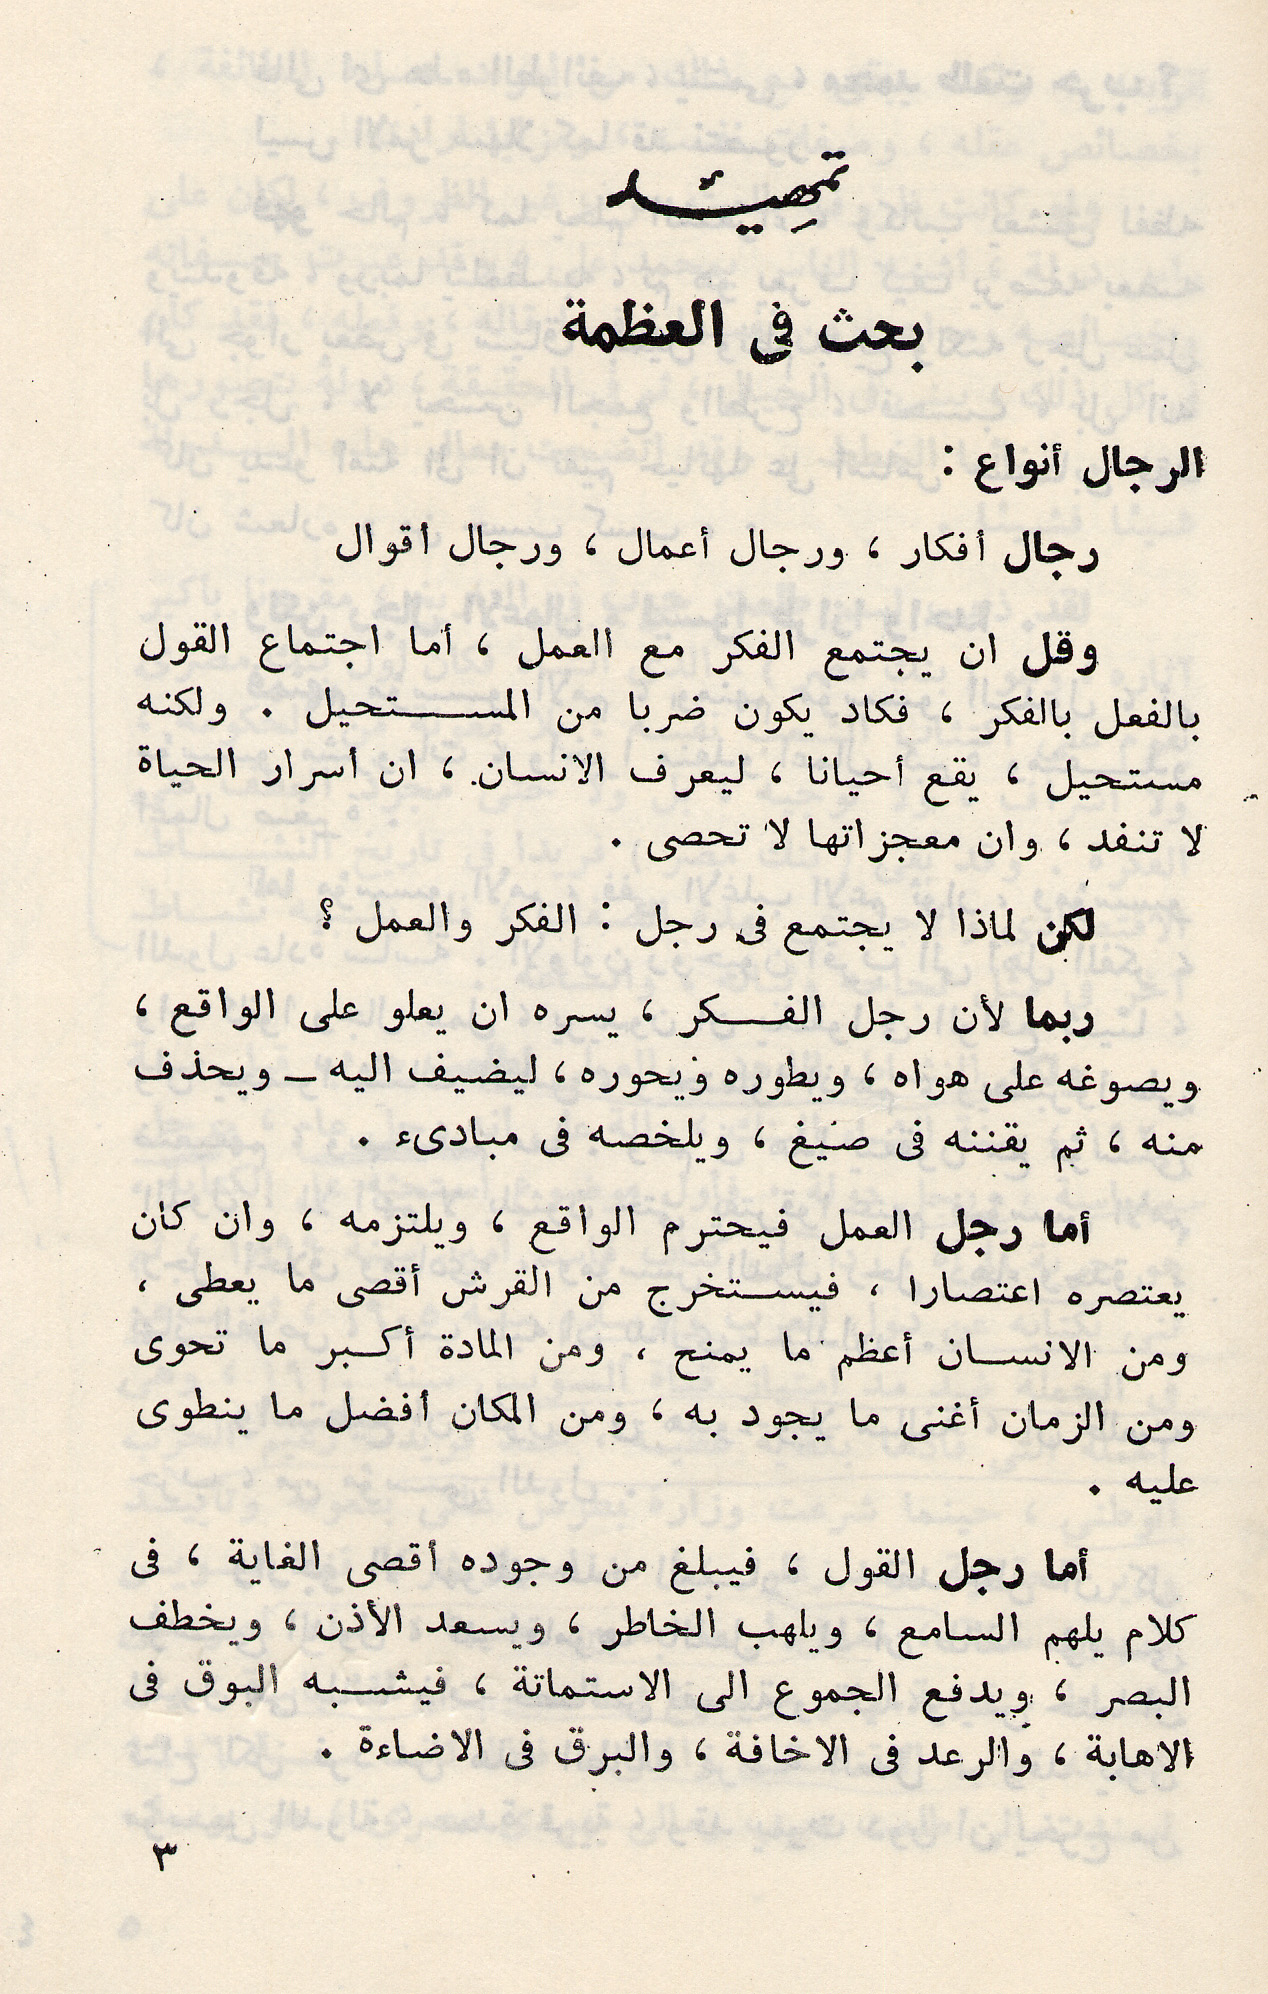 تمهيد
بحث فى العظمة
الرجال أنواع :
رجال أفكار ، ورجال أعمال ، ورجال أقوال
وقل ان يجتمع الفكر مع العمل ، أما اجتماع القول
بالفعل بالفكر ، فكاد يكون ضربا من المستحيل . ولكنه
مستحيل ، يقع أحيانا ، ليعرف الانسان ، ان أسرار الحياة
لا تنفد ، وان معجزاتها لا تحصى .
لكن لماذا لا يجتمع فى رجل : الفكر والعمل ؟
ربما لأن رجل الفكر ، يسره ان يعلو على الواقع ،
ويصوغه على هواه ، ويطوره ويحوره ، ليضيف اليه ـ ويحذف
منه ، ثم يقننه فى صيغ ، ويلخصه فى مبادىء .
أما رجل العمل فيحترم الواقع ، ويلتزمه ، وان كان
يعتصره اعتصارا ، فيستخرج من القرش أقصى ما يعطى ،
ومن الانسان أعظم ما يمنح ، ومن المادة أكبر ما تحوى
ومن الزمان أغنى ما يجود به ، ومن المكان أفضل ما ينطوى
عليه .
أما رجل القول ، فيبلغ من وجوده أقصى الغاية ، فى
كلام يلهم السامع ، ويلهب الخاطر ، ويسعد الأذن ، ويخطف
البصر ، ويدفع الجموع الى الاستماتة ، فيشبه البوق فى
الاهابة ، والرعد فى الاخافة ، والبرق فى الاضاءة .
٣